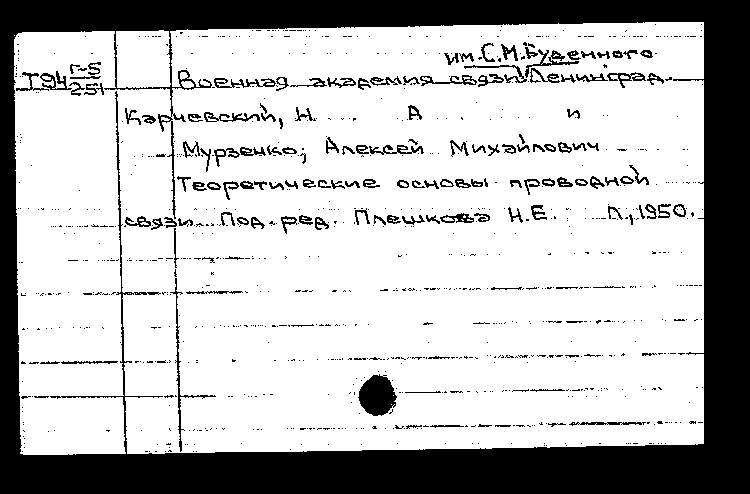 им. С.М. Буденного
Т94 Г-5 Военная академия связи Ленинград.
251
Карчевский, Н А и
Мурзенко, Алексей Михайлович
Теоретические основы проводной
связи. Под. ред. Плешкова Н.Е. Л., 1950.